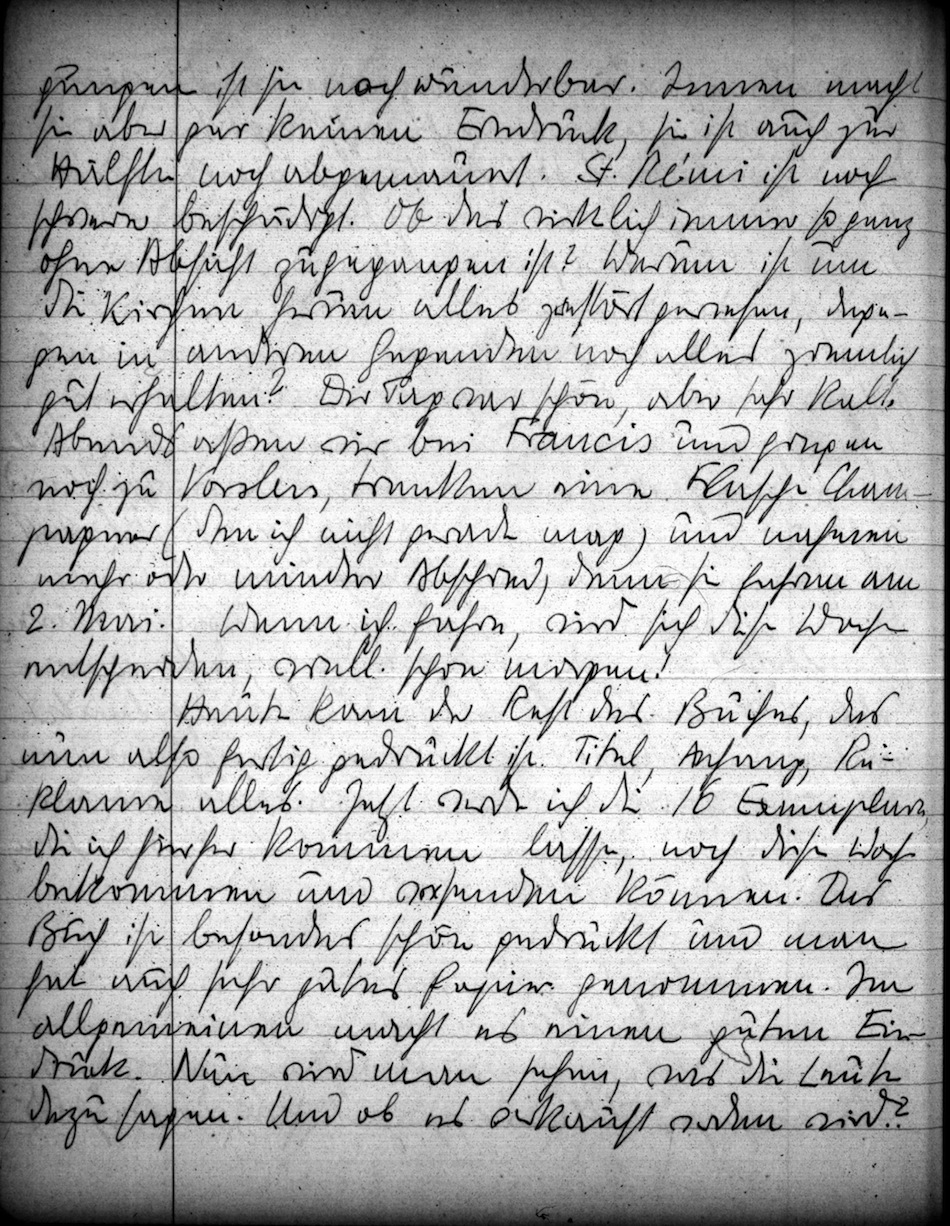 gungen ist sie noch wunderbar. Innen macht
sie aber gar keinen Eindruck, sie ist auch zur
Hälfte noch abgemauert. St. Rémi ist noch
schwerer beschädigt. Ob das wirklich immer so ganz
ohne Absicht zugegangen ist? Warum ist um
die Kirchen herum alles zerstört gewesen, dage-
gen in anderen Gegenden noch alles ziemlich
gut erhalten? Der Tag war schön, aber sehr kalt.
Abends aßen wir bei Francis und gingen
noch zu, tranken eine Flasche Cham-
pagner (den ich nicht gerade mag) und nahmen
mehr oder minder Abschied, denn sie fahren am
2. Mai. Wann ich fahre, wird sich diese Woche
entscheiden, viell. schon morgen!
Heute kam der Rest des Buches, das
nun also fertig gedruckt ist. Titel, Anhang, Re-
klame alles. Jetzt werde ich die 16 Exemplare,
die ich hierher kommen lasse, noch diese Woche
bekommen und versenden können. Das
Buch ist besonders schön gedruckt und man
hat auch sehr gutes Papier genommen. Im
allgemeinen macht es einen guten Ein-
druck. Nun wird man sehen, was die Leute
dazu sagen. Und ob es verkauft werden wird?